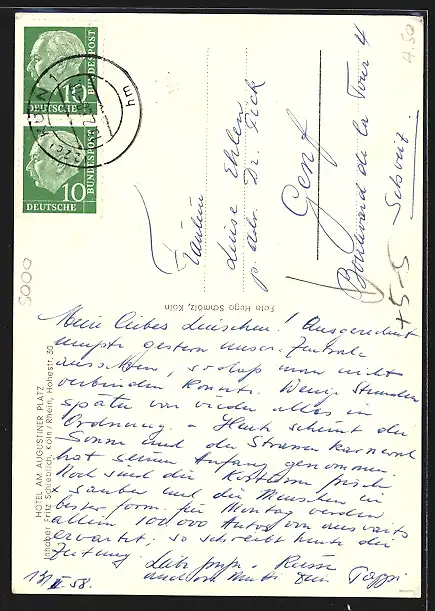 10
BUNDESPOST
DEUTSCHE
hm
10
BUNDESPOST
DEUTSCHE
4.50
Fräulein
Luise Ehlen
p adr Dr. Fick
Genf
Boulevard de la Tour 4
Schweiz
+5-5
5000
Foto Hugo Schmölz, Köln
HOTEL AM AUGUSTINER PLATZ
Inhaber: Fritz Schieblich, Köln/Rhein, Hohestr. 30
Mein liebes Luischen! Ausgerechnet
mußte gestern unsere Zentrale
aussetzen, sodaß man nicht
verbinden konnte. Wenige Stunden
später war wieder alles in
Ordnung. - Heute scheint die
Sonne und der Strassenkarneval
hat seinen Anfang genommen.
Noch sind die Kostüme frisch
x sauber und die Menschen in
bester Form. für Montag werden
allein 100000 Autos von auswärts
erwartet; so schreibt heute die
Zeitung.
Liebe Küsse
und von Mutti Dein Pappi
15/II.58.